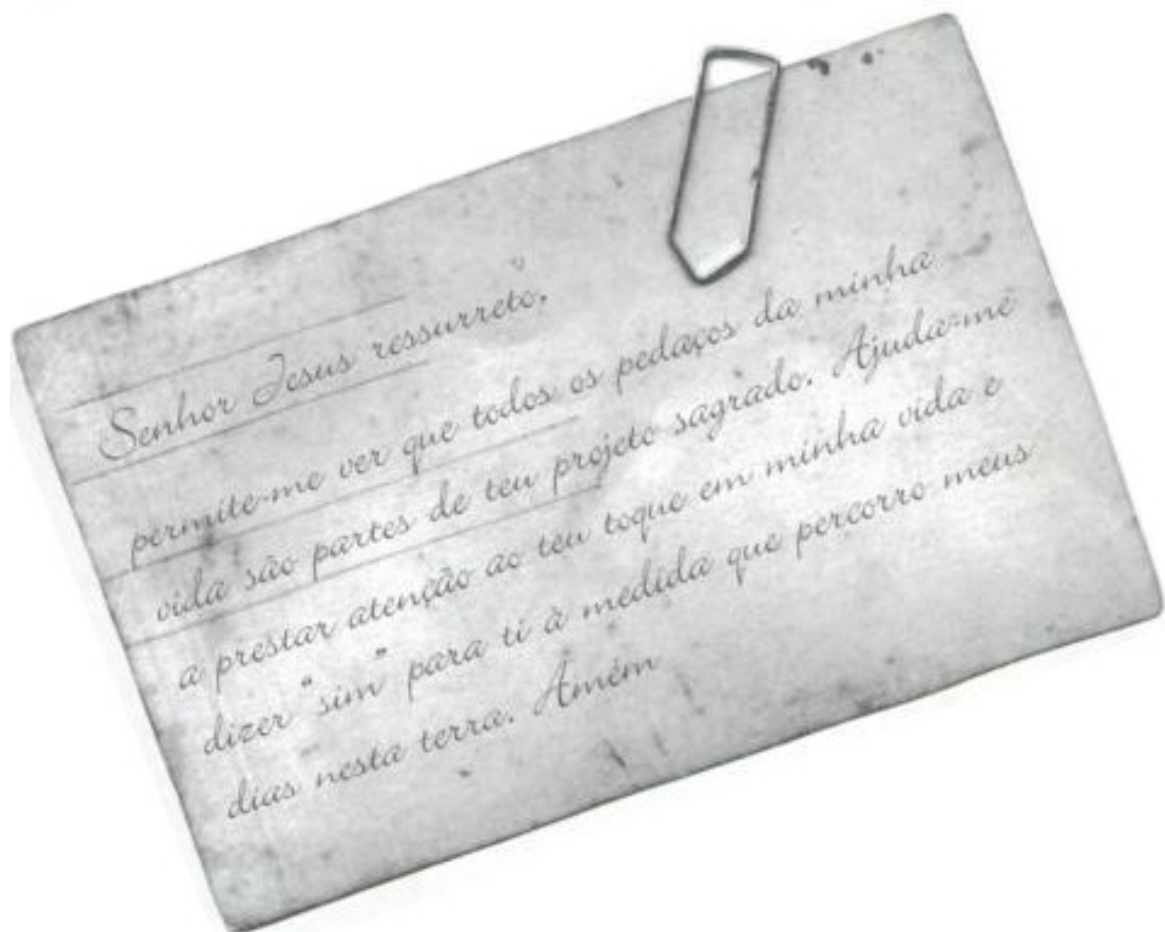 Senhor Jesus ressurreto,
permite-me ver que todos os pedaços da minha
vida são partes de teu projeto sagrado. Ajuda-me
a prestar atenção ao teu toque em minha vida e
dizer "sim" para ti à medida que percorro meus
dias nesta terra. Amém